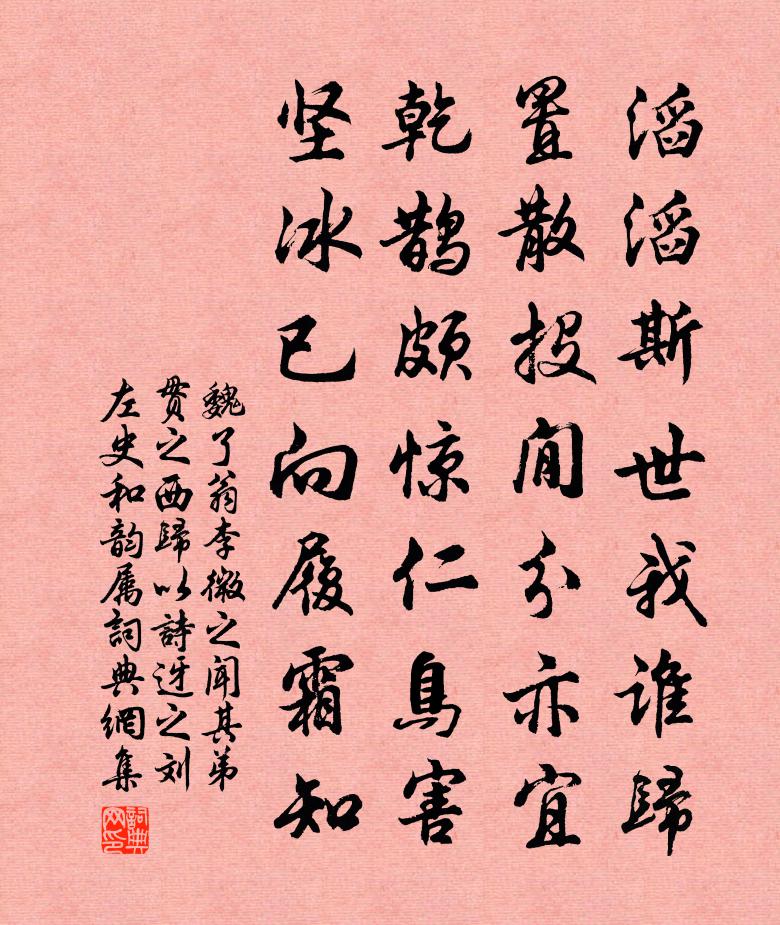 滔滔斯世我谁歸
置散投閒分亦宜
乾鹊颇惊仁鳥害
坚冰已向履霜知
魏了翁李微之闻其弟
贯之西歸以詩迓之刘
左史和韵属詞典網集
詞典网印